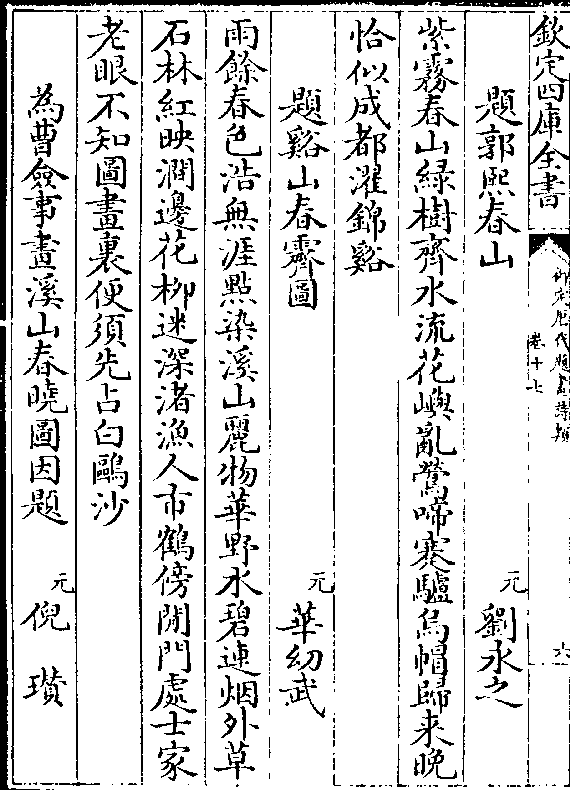 欽定四庫全書
御定歷代題畫詩類
卷十七
六
題郭熙春山 元 劉永之
紫霧春山綠樹齊水流花嶼亂鶯啼蹇驢烏帽歸来晚
恰似成都濯錦谿
題谿山春霽圖 元 華幼武
雨餘春色浩無涯點染溪山麗物華野水碧連烟外草
石林紅映澗邊花柳迷深渚漁人市鶴傍閒門處士家
老眼不知圖畫裏便須先占白鷗沙
為曹僉事畫溪山春曉圖因題 元 倪瓚